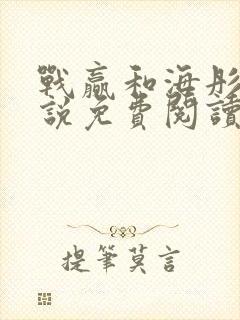 戰贏和海彤
說免費閱讀
提筆莫言